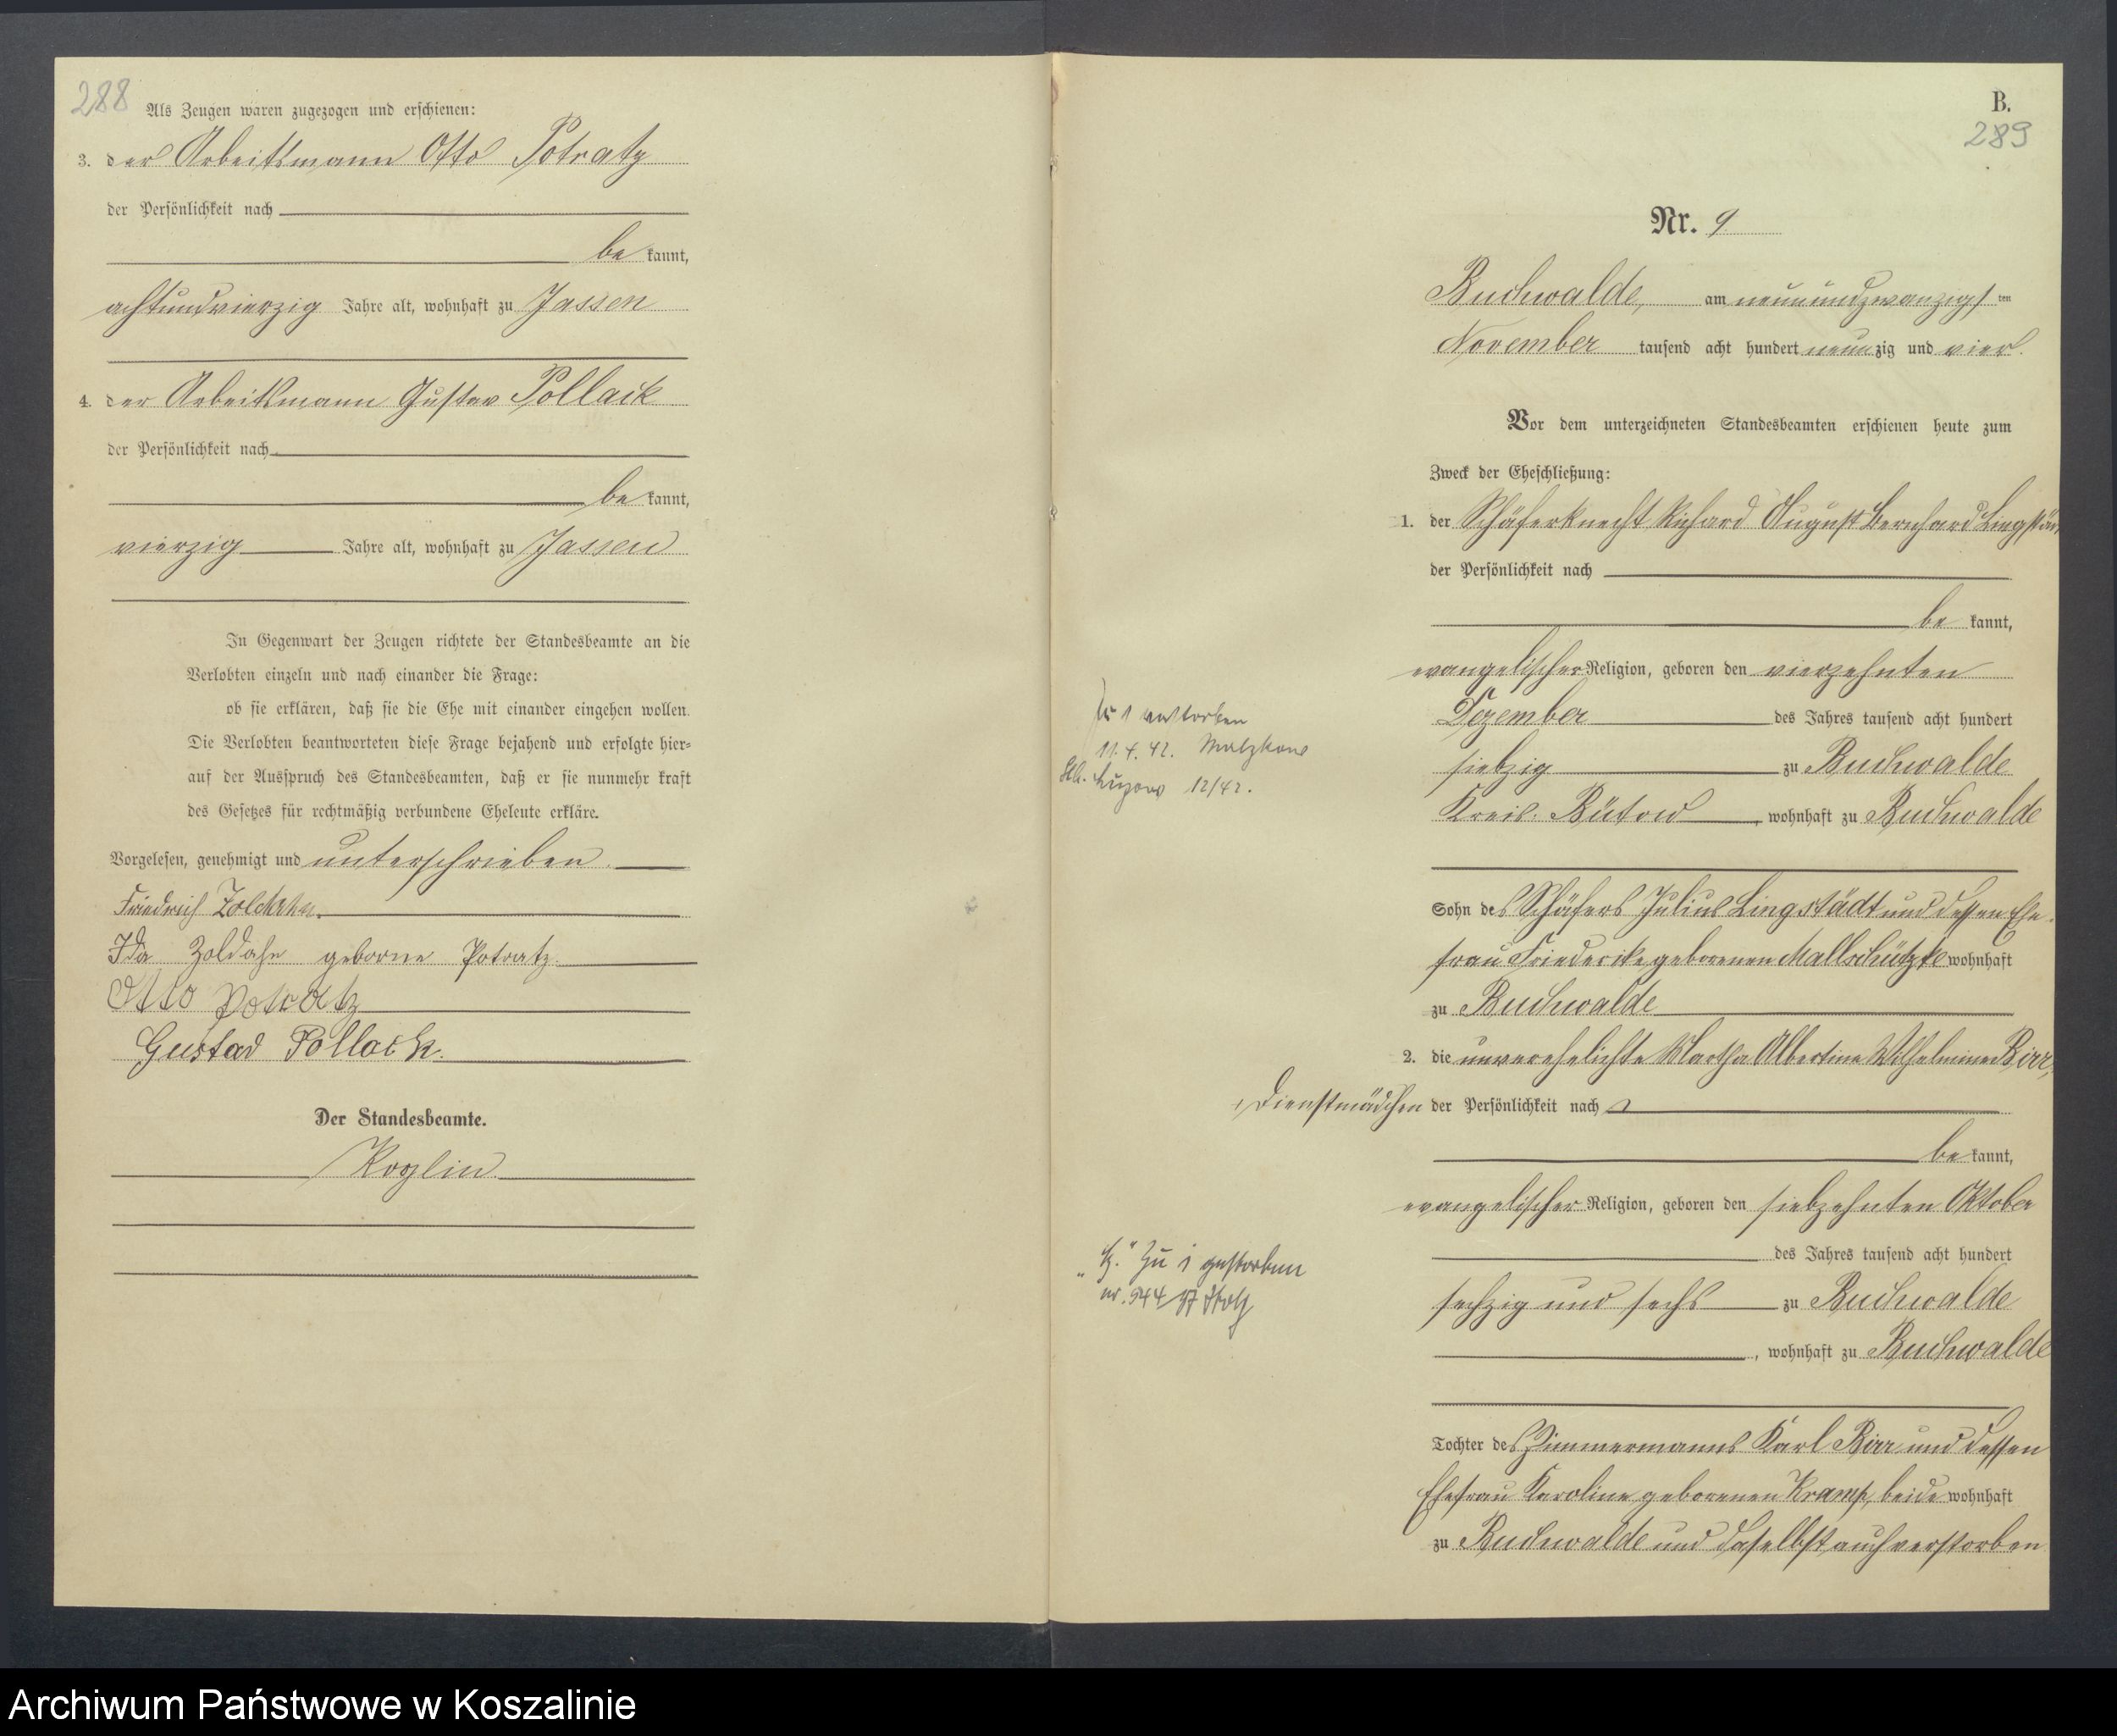 288
Als Zeugen waren zugezogen und erschienen:
3. der Arbeitsmann Otto Potratz
der Persönlichkeit nach
be kannt,
achtundvierzig Jahre alt, wohnhaft zu Jassen
4. der Arbeitsmann Gustav Pollack
der Persönlichkeit nach
be kannt,
vierzig Jahre alt, wohnhaft zu Jassen
In Gegenwart der Zeugen richtete der Standesbeamte an die
Verlobten einzeln und nach einander die Frage:
ob sie erklären, daß sie die Ehe mit einander eingehen wollen.
Die Verlobten beantworteten diese Frage bejahend und erfolgte hier-
auf der Ausspruch des Standesbeamten, daß er sie nunmehr kraft
des Gesetzes für rechtmäßig verbundene Eheleute erkläre.
Vorgelesen, genehmigt und unterschrieben.
Friedrich
Ida Zoldahn geborne Potratz.
Otto Potratz
Gustav Pollack.
Der Standesbeamte.
Koglin.
B.
289
Nr. 9
Buchwalde, am neunundzwanzigsten
November tausend acht hundert neunzig und vier.
Vor dem unterzeichneten Standesbeamten erschienen heute zum
Zweck der Eheschließung:
1. der Schäferknecht Richard August Bernhard Lingstädt,
der Persönlichkeit nach
be kannt,
evangelischer Religion, geboren den vierzehnten
Dezember des Jahres tausend acht hundert
siebzig zu Buchwalde
Kreis Bütow, wohnhaft zu Buchwalde
Sohn des Schäfers Julius Lingstädt und dessen Ehe-
frau Friederike geborenen Mallschützke wohnhaft
zu Buchwalde
2. die unverehelichte Martha Albertine Wilhelmine Birr,
Dienstmädchen der Persönlichkeit nach
be kannt,
evangelischer Religion, geboren den siebzehnten Oktober
des Jahres tausend acht hundert
sechzig und sechs zu Buchwalde
, wohnhaft zu Buchwalde
Tochter des Zimmermanns Karl Birr und dessen
Ehefrau Karoline geborenen Kramp, beide wohnhaft
zu Buchwalde und daselbst auch verstorben
Zu 1 verstorben
11.4.42.
12/42.
Zu 1 gestorben
Archiwum Państwowe w Koszalinie